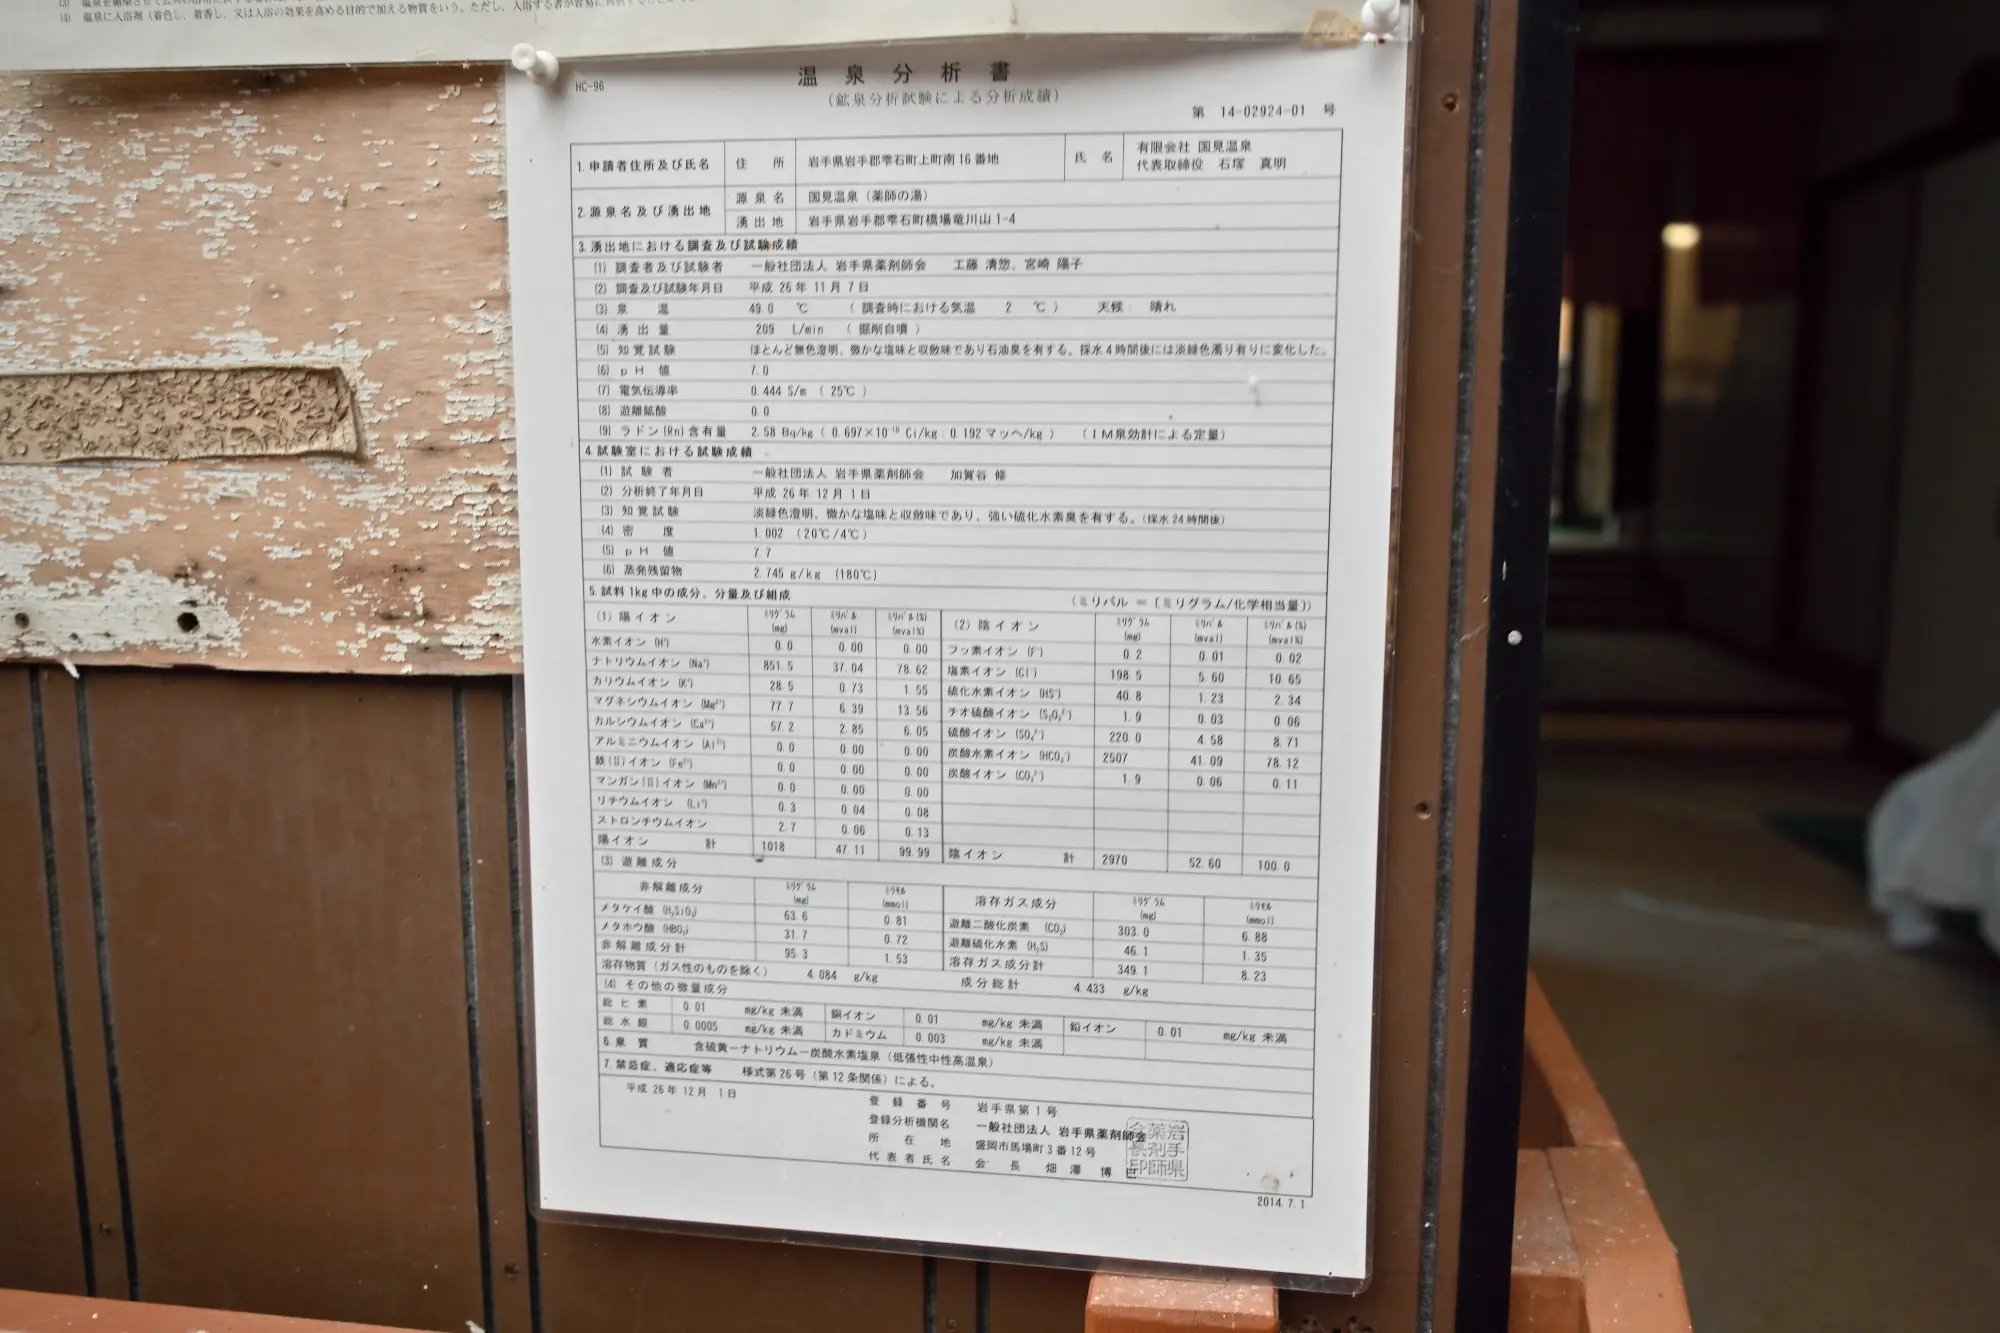 (4) 温泉に入浴剤（着色し、着香し、又は入浴の効果を高める目的で加える物質をいう。ただし、入浴する者が容易に
HC-96
温泉分析書
（鉱泉分析試験による分析成績）
第 14-02924-01 号
1.申請者住所及び氏名 住所 岩手県岩手郡雫石町上町南16番地 氏名 有限会社 国見温泉
代表取締役 石塚 真明
2.源泉名及び湧出地 源泉名 国見温泉（薬師の湯）
湧出地 岩手県岩手郡雫石町橋場竜川山1-4
3.湧出地における調査及び試験成績
(1) 調査者及び試験者 一般社団法人 岩手県薬剤師会 工藤 清惣、宮崎 陽子
(2) 調査及び試験年月日 平成 26年 11月 7日
(3) 泉温 49.0 ℃ （調査時における気温 2 ℃） 天候: 晴れ
(4) 湧出量 209 L/min （掘削自噴）
(5) 知覚試験 ほとんど無色澄明、微かな塩味と収斂味であり石油臭を有する。採水4時間後には淡緑色濁り有りに変化した。
(6) pH値 7.0
(7) 電気伝導率 0.444 S/m （25℃）
(8) 遊離鉱酸 0.0
(9) ラドン(Rn)含有量 2.58 Bq/kg（0.697×10⁻¹⁰ Ci/kg: 0.192 マッヘ/kg） （IM泉効計による定量）
4.試験室における試験成績
(1) 試験者 一般社団法人 岩手県薬剤師会 加賀谷 修
(2) 分析終了年月日 平成 26年 12月 1日
(3) 知覚試験 淡緑色澄明、微かな塩味と収斂味であり、強い硫化水素臭を有する。（採水24時間後）
(4) 密度 1.002 （20℃/4℃）
(5) pH値 7.7
(6) 蒸発残留物 2.745 g/kg （180℃）
5.試料1kg中の成分、分量及び組成 （ミリバル = [ミリグラム/化学相当量]）
(1) 陽イオン ミリグラム(mg) ミリバル(mval) ミリバル(%)(mval%) (2) 陰イオン ミリグラム(mg) ミリバル(mval) ミリバル(%)(mval%)
水素イオン (H⁺) 0.0 0.00 0.00 フッ素イオン (F⁻) 0.2 0.01 0.02
ナトリウムイオン (Na⁺) 851.5 37.04 78.62 塩素イオン (Cl⁻) 198.5 5.60 10.65
カリウムイオン (K⁺) 28.5 0.73 1.55 硫化水素イオン (HS⁻) 40.8 1.23 2.34
マグネシウムイオン (Mg²⁺) 77.7 6.39 13.56 チオ硫酸イオン (S₂O₃²⁻) 1.9 0.03 0.06
カルシウムイオン (Ca²⁺) 57.2 2.85 6.05 硫酸イオン (SO₄²⁻) 220.0 4.58 8.71
アルミニウムイオン (Al³⁺) 0.0 0.00 0.00 炭酸水素イオン (HCO₃⁻) 2507 41.09 78.12
鉄(II)イオン (Fe²⁺) 0.0 0.00 0.00 炭酸イオン (CO₃²⁻) 1.9 0.06 0.11
マンガン(II)イオン (Mn²⁺) 0.0 0.00 0.00
リチウムイオン (Li⁺) 0.3 0.04 0.08
ストロンチウムイオン 2.7 0.06 0.13
陽イオン 計 1018 47.11 99.99 陰イオン 計 2970 52.60 100.0
(3) 遊離成分
非解離成分 ミリグラム(mg) ミリモル(mmol) 溶存ガス成分 ミリグラム(mg) ミリモル(mmol)
メタケイ酸 (H₂SiO₃) 63.6 0.81 遊離二酸化炭素 (CO₂) 303.0 6.88
メタホウ酸 (HBO₂) 31.7 0.72 遊離硫化水素 (H₂S) 46.1 1.35
非解離成分計 95.3 1.53 溶存ガス成分計 349.1 8.23
溶存物質（ガス性のものを除く） 4.084 g/kg 成分総計 4.433 g/kg
(4) その他の微量成分
総ヒ素 0.01 mg/kg 未満 銅イオン 0.01 mg/kg 未満 鉛イオン 0.01 mg/kg 未満
総水銀 0.0005 mg/kg 未満 カドミウム 0.003 mg/kg 未満
6.泉質 含硫黄ーナトリウムー炭酸水素塩泉（低張性中性高温泉）
7.禁忌症、適応症等 様式第26号（第12条関係）による。
平成 26年 12月 1日
登録番号 岩手県第1号
登録分析機関名 一般社団法人 岩手県薬剤師会
所在地 盛岡市馬場町3番12号
代表者氏名 会長 畑澤 博巳
岩手県薬剤師会長印
2014.7.1